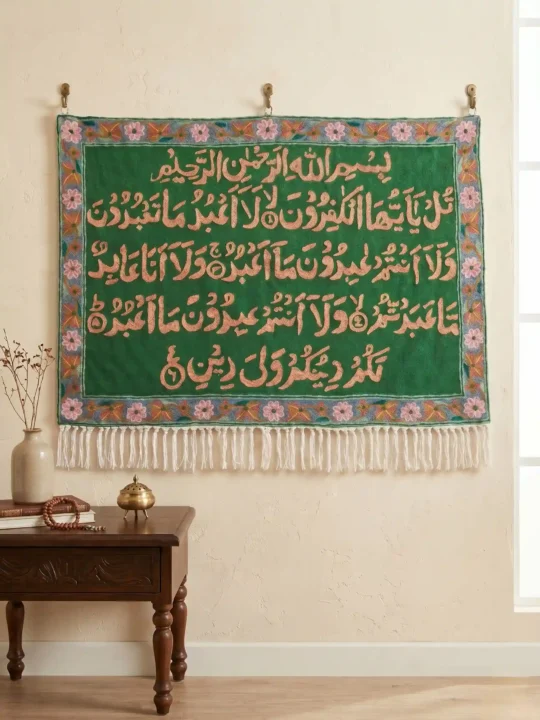 بِسْمِ اللهِ الرَّحْمٰنِ الرَّحِيْمِ
قُلْ يَآ اَيُّهَا الْكٰفِرُوْنَ ۙ۝١ لَآ اَعْبُدُ مَا تَعْبُدُوْنَ
وَلَآ اَنْتُمْ عٰبِدُوْنَ مَآ اَعْبُدُ ۚ۝ وَلَآ اَنَا عَابِدٌ
مَّا عَبَدْتُّمْ ۙ۝٤ وَلَآ اَنْتُمْ عٰبِدُوْنَ مَآ اَعْبُدُ ۝٥ؕ
لَكُمْ دِيْنُكُمْ وَلِيَ دِيْنِ ۝٦ ع